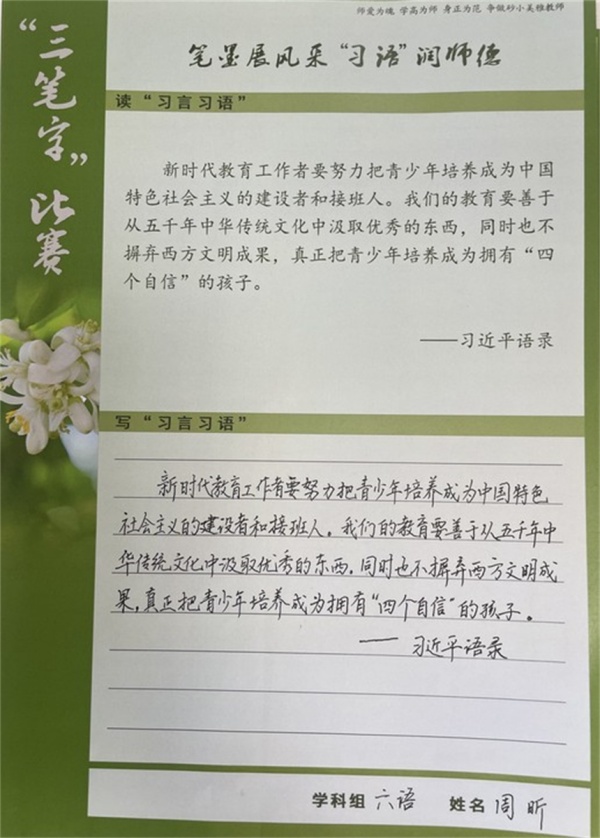 师爱为魂 学高为师 身正为范 争做砂小美雅教师
“三笔字”比赛
笔墨展风采“习语”润师德
读“习言习语”
新时代教育工作者要努力把青少年培养成为中国
特色社会主义的建设者和接班人。我们的教育要善于
从五千年中华传统文化中汲取优秀的东西，同时也不
摒弃西方文明成果，真正把青少年培养成为拥有“四
个自信”的孩子。
——习近平语录
写“习言习语”
新时代教育工作者要努力把青少年培养成为中国特色
社会主义的建设者和接班人。我们的教育要善于从五千年中
华传统文化中汲取优秀的东西，同时也不摒弃西方文明成
果，真正把青少年培养成为拥有“四个自信”的孩子。
——习近平语录
学科组 六语 姓名 周昕